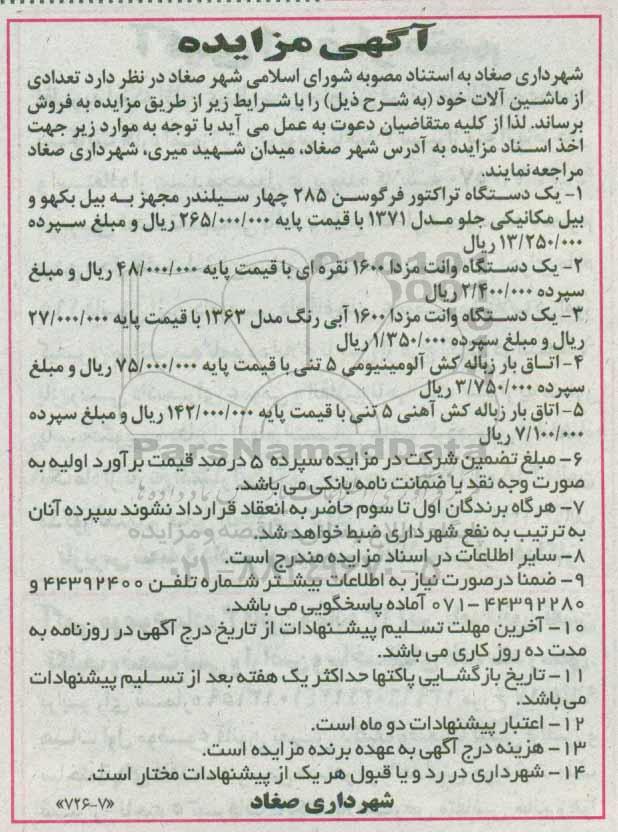 آگهی مزایده
شهرداری صغاد به استناد مصوبه شورای اسلامی شهر صغاد در نظر دارد تعدادی
از ماشین آلات خود (به شرح ذیل) را با شرایط زیر از طریق مزایده به فروش
برساند. لذا از کلیه متقاضیان دعوت به عمل می آید با توجه به موارد زیر جهت
اخذ اسناد مزایده به آدرس شهر صغاد، میدان شهید میری، شهرداری صغاد
مراجعه نمایند.
۱- یک دستگاه تراکتور فرگوسن ۲۸۵ چهار سیلندر مجهز به بیل بکهو و
بیل مکانیکی جلو مدل ۱۳۷۱ با قیمت پایه ۲۶۵/۰۰۰/۰۰۰ ریال و مبلغ سپرده
۱۳/۲۵۰/۰۰۰ ریال
۲- یک دستگاه وانت مزدا ۱۶۰۰ نقره ای با قیمت پایه ۴۸/۰۰۰/۰۰۰ ریال و مبلغ
سپرده ۲/۴۰۰/۰۰۰ ریال
۳- یک دستگاه وانت مزدا ۱۶۰۰ آبی رنگ مدل ۱۳۶۳ با قیمت پایه ۲۷/۰۰۰/۰۰۰
ریال و مبلغ سپرده ۱/۳۵۰/۰۰۰ ریال
۴- اتاق بار زباله کش آلومینیومی ۵ تنی با قیمت پایه ۷۵/۰۰۰/۰۰۰ ریال و مبلغ
سپرده ۳/۷۵۰/۰۰۰ ریال
۵- اتاق بار زباله کش آهنی ۵ تنی با قیمت پایه ۱۴۲/۰۰۰/۰۰۰ ریال و مبلغ سپرده
۷/۱۰۰/۰۰۰ ریال
ParsNamadData
۶- مبلغ تضمین شرکت در مزایده سپرده ۵ درصد قیمت برآورد اولیه به
صورت وجه نقد یا ضمانت نامه بانکی می باشد.
۷- هرگاه برندگان اول تا سوم حاضر به انعقاد قرارداد نشوند سپرده آنان
به ترتیب به نفع شهرداری ضبط خواهد شد.
۸- سایر اطلاعات در اسناد مزایده مندرج است.
۹- ضمنا درصورت نیاز به اطلاعات بیشتر شماره تلفن ۴۴۳۹۲۴۰۰ و
۴۴۳۹۲۲۸۰-۰۷۱ آماده پاسخگویی می باشد.
۱۰- آخرین مهلت تسلیم پیشنهادات از تاریخ درج آگهی در روزنامه به
مدت ده روز کاری می باشد.
۱۱- تاریخ بازگشایی پاکتها حداکثر یک هفته بعد از تسلیم پیشنهادات
می باشد.
۱۲- اعتبار پیشنهادات دو ماه است.
۱۳- هزینه درج آگهی به عهده برنده مزایده است.
۱۴- شهرداری در رد و یا قبول هر یک از پیشنهادات مختار است.
شهرداری صغاد
«۷۲۶-۷»